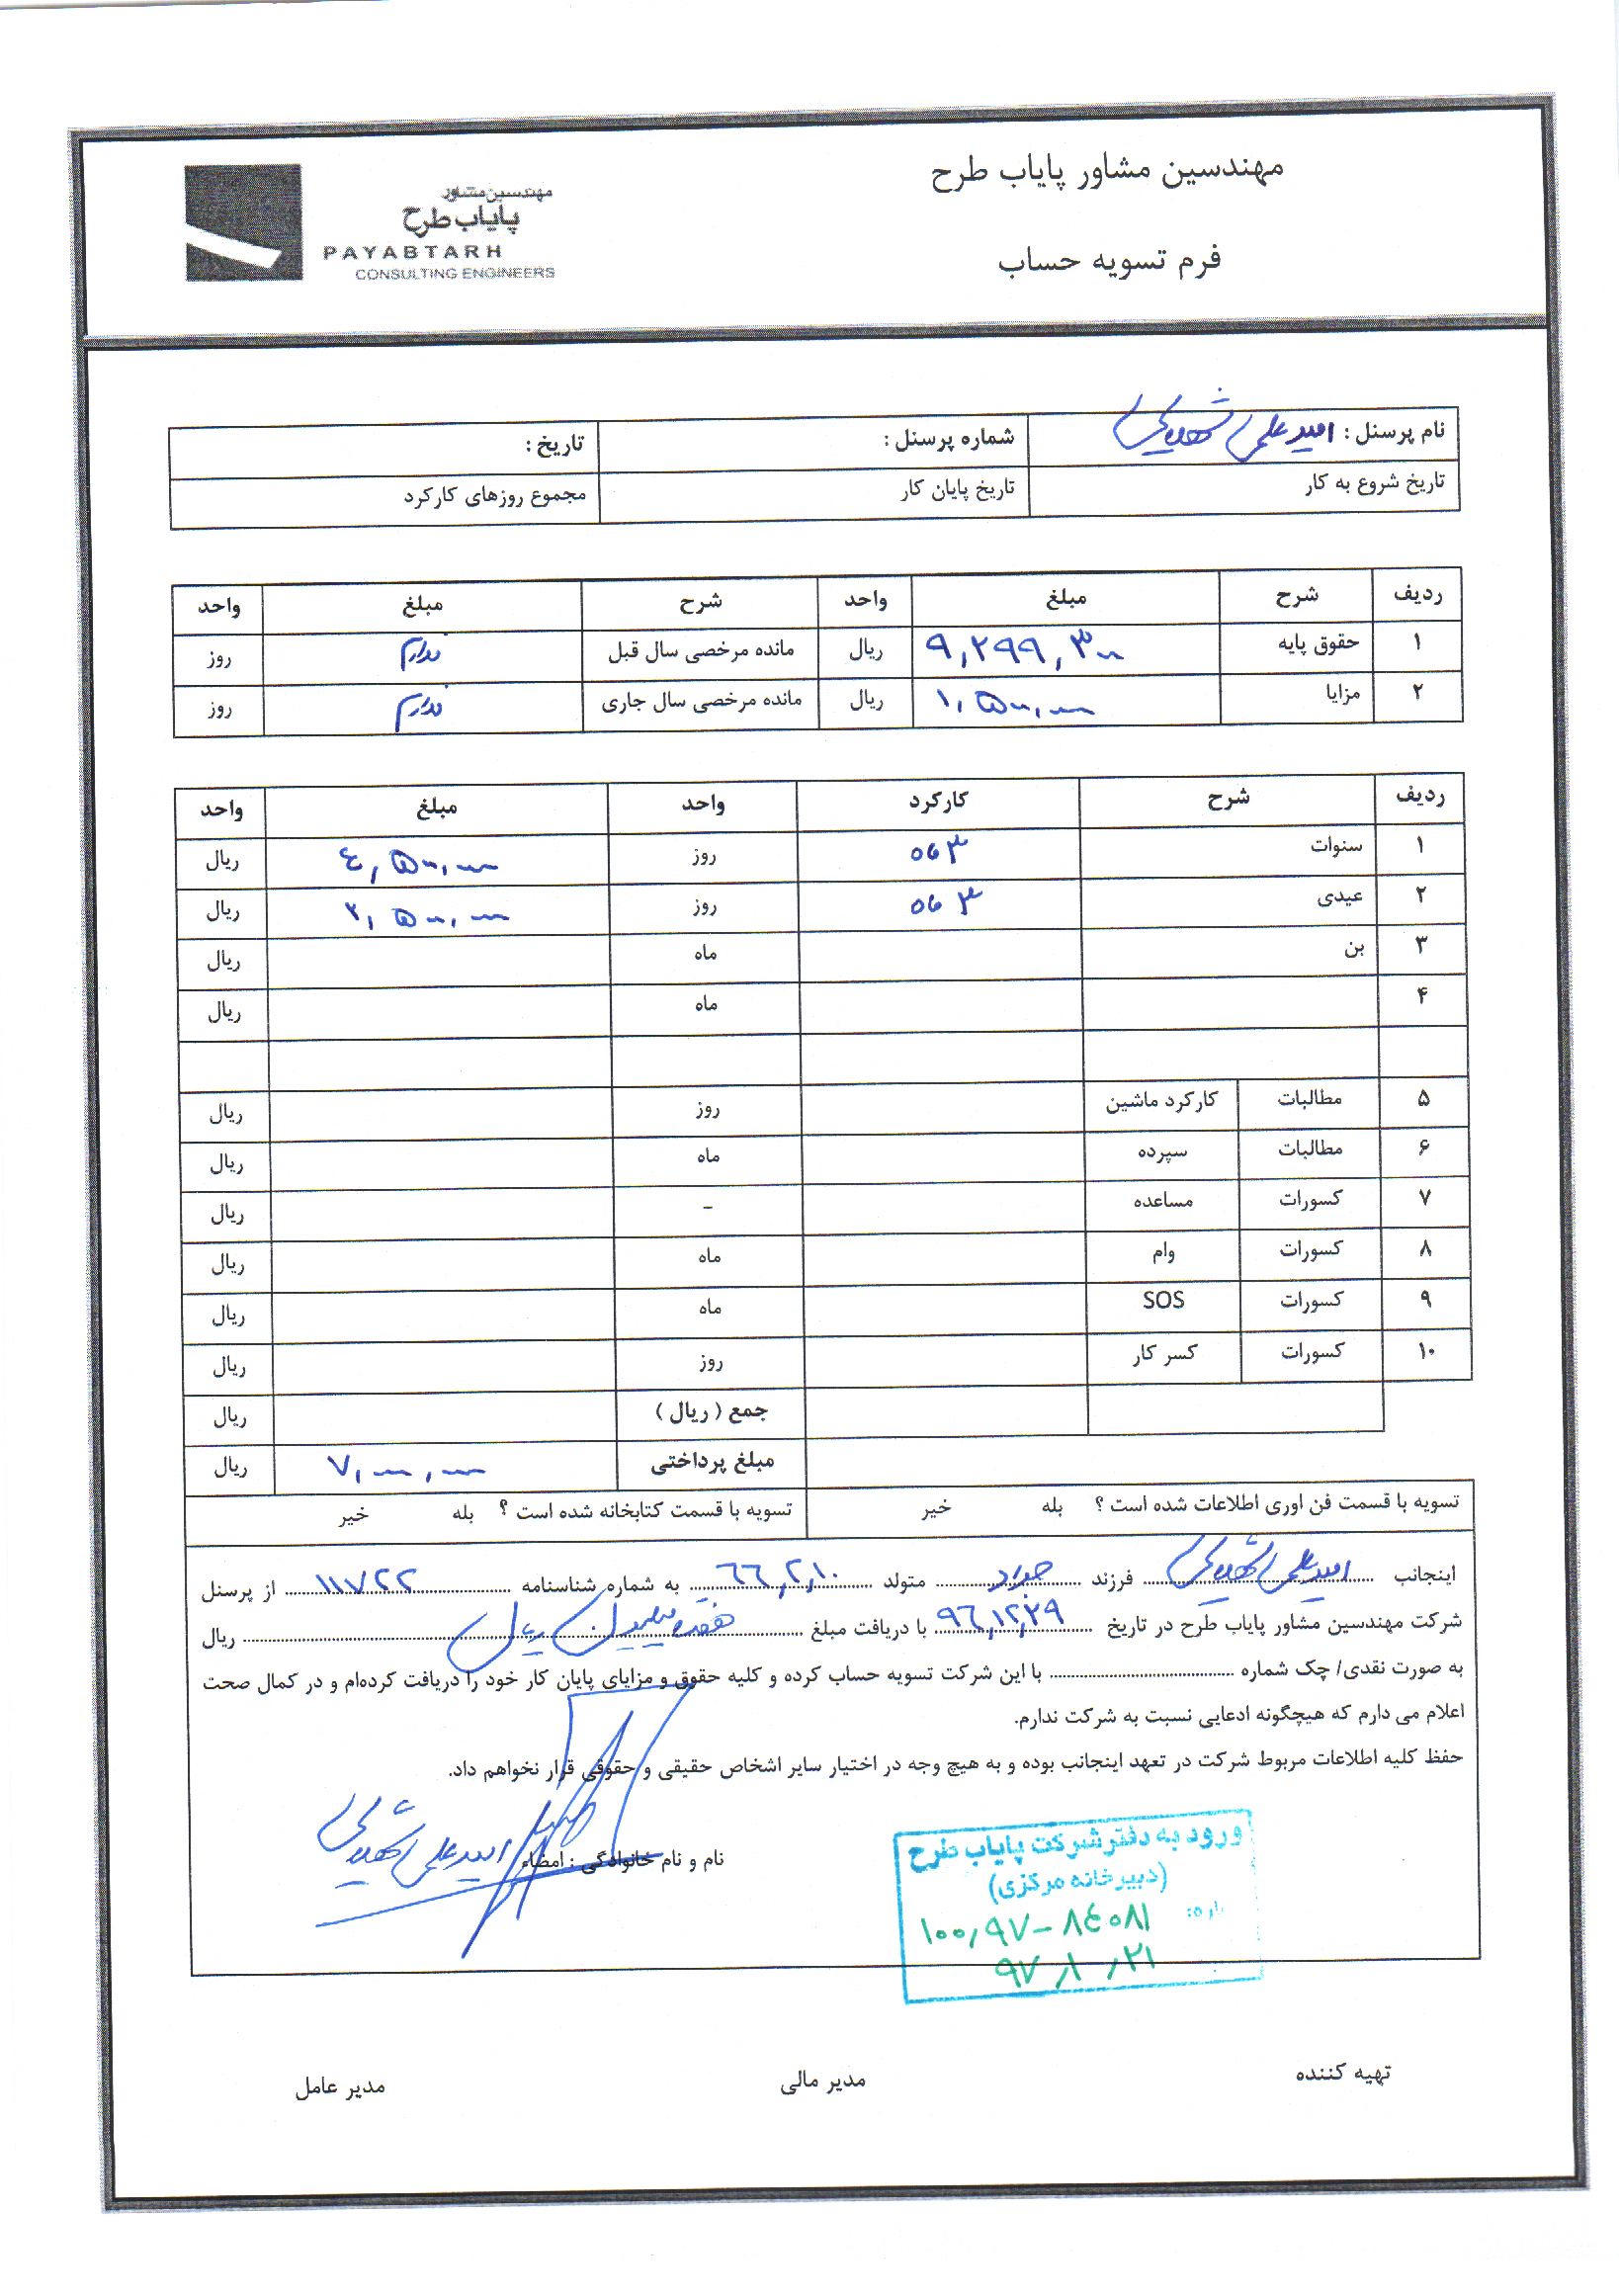 مهندسین مشاور پایاب طرح
مهندسین مشاور
پایاب طرح
PAYABTARH
CONSULTING ENGINEERS
فرم تسویه حساب
نام پرسنل : امید علی شهدایی شماره پرسنل : تاریخ :
تاریخ شروع به کار تاریخ پایان کار مجموع روزهای کارکرد
ردیف شرح مبلغ واحد شرح مبلغ واحد
۱ حقوق پایه ۹,۲۹۹,۳۰۰ ریال مانده مرخصی سال قبل ندارم روز
۲ مزایا ۱,۵۰۰,۰۰۰ ریال مانده مرخصی سال جاری ندارم روز
ردیف شرح کارکرد واحد مبلغ واحد
۱ سنوات روز ٤,۵۰۰,۰۰۰ ریال
۲ عیدی روز ۲,۵۰۰,۰۰۰ ریال
۳ بن ماه ریال
۴ ماه ریال
۵ مطالبات کارکرد ماشین روز ریال
۶ مطالبات سپرده ماه ریال
۷ کسورات مساعده - ریال
۸ کسورات وام ماه ریال
۹ کسورات SOS ماه ریال
۱۰ کسورات کسر کار روز ریال
جمع ( ریال ) ریال
مبلغ پرداختی ۷,۰۰۰,۰۰۰ ریال
تسویه با قسمت فن اوری اطلاعات شده است ؟ بله خیر تسویه با قسمت کتابخانه شده است ؟ بله خیر
اینجانب امید علی شهدایی فرزند جواد متولد ٦٦,۲,۱۰ به شماره شناسنامه ۱۱۷۲۲ از پرسنل
شرکت مهندسین مشاور پایاب طرح در تاریخ ۹٦,۱۲,۲۹ با دریافت مبلغ هفت میلیون ریال ریال
به صورت نقدی/ چک شماره با این شرکت تسویه حساب کرده و کلیه حقوق و مزایای پایان کار خود را دریافت کرده‌ام و در کمال صحت
اعلام می دارم که هیچگونه ادعایی نسبت به شرکت ندارم.
حفظ کلیه اطلاعات مربوط شرکت در تعهد اینجانب بوده و به هیچ وجه در اختیار سایر اشخاص حقیقی و حقوقی قرار نخواهم داد.
نام و نام خانوادگی : امضاء امید علی شهدایی
ورود به دفتر شرکت پایاب طرح
(دبیرخانه مرکزی)
۱۰۰,۹۷-۸٤۰۸۱
۹۷,۱۰,۲۱
تهیه کننده مدیر مالی مدیر عامل